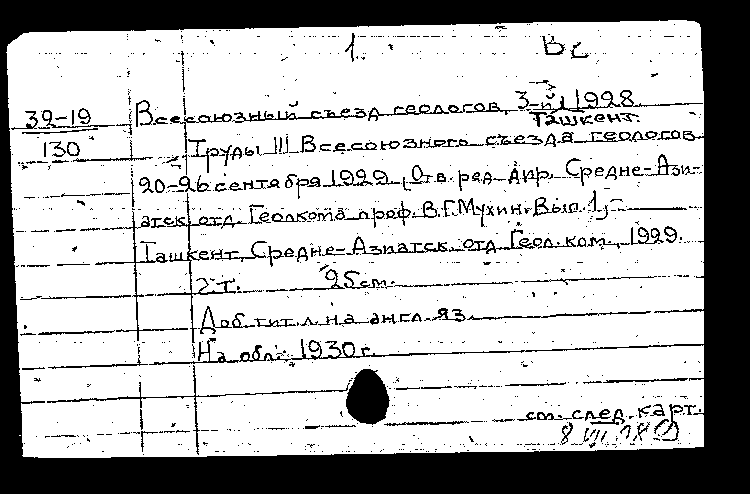 1. Вс
32-19 Всесоюзный съезд геологов, 3-й, 1928.
Ташкент.
130 Труды III Всесоюзного съезда геологов
20-26 сентября 1929, Отв. ред. дир. Средне-Ази-
атск. отд. Геолкома проф. В.Г. Мухин. Вып. 1,-
Ташкент, Средне-Азиатск. отд. Геол. ком., 1929.
2 т. 25 см.
Доб. тит. л. на англ. яз.
На обл.: 1930 г.
см. след. карт.
8 VII